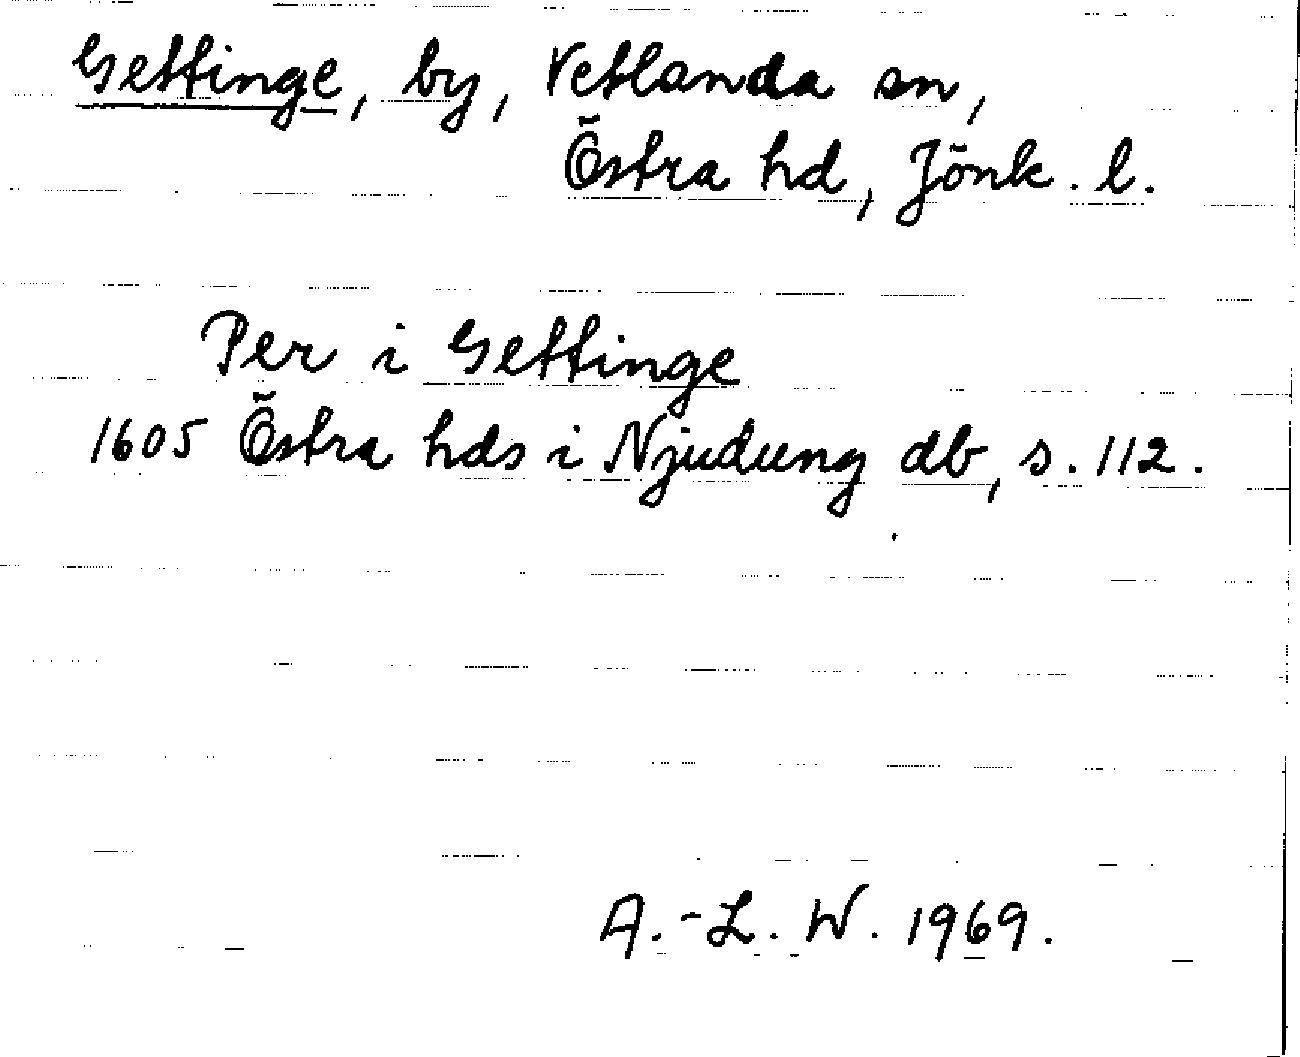 Gettinge, by, Vetlanda sn,
Östra hd, Jönk. l.
Per i Gettinge
1605 Östra hds i Njudung db, s. 112.
A.-L. W. 1969.